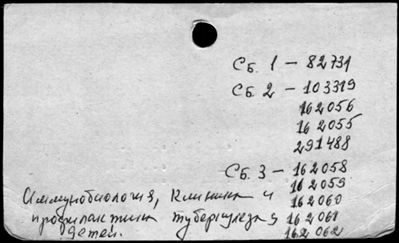 Сб. 1 – 82731
Сб. 2 – 103319
162056
162055
291488
Сб. 3 – 162058
162059
Иммунобиология, клиника и 162060
профилактика туберкулеза у 162061
детей. 162062